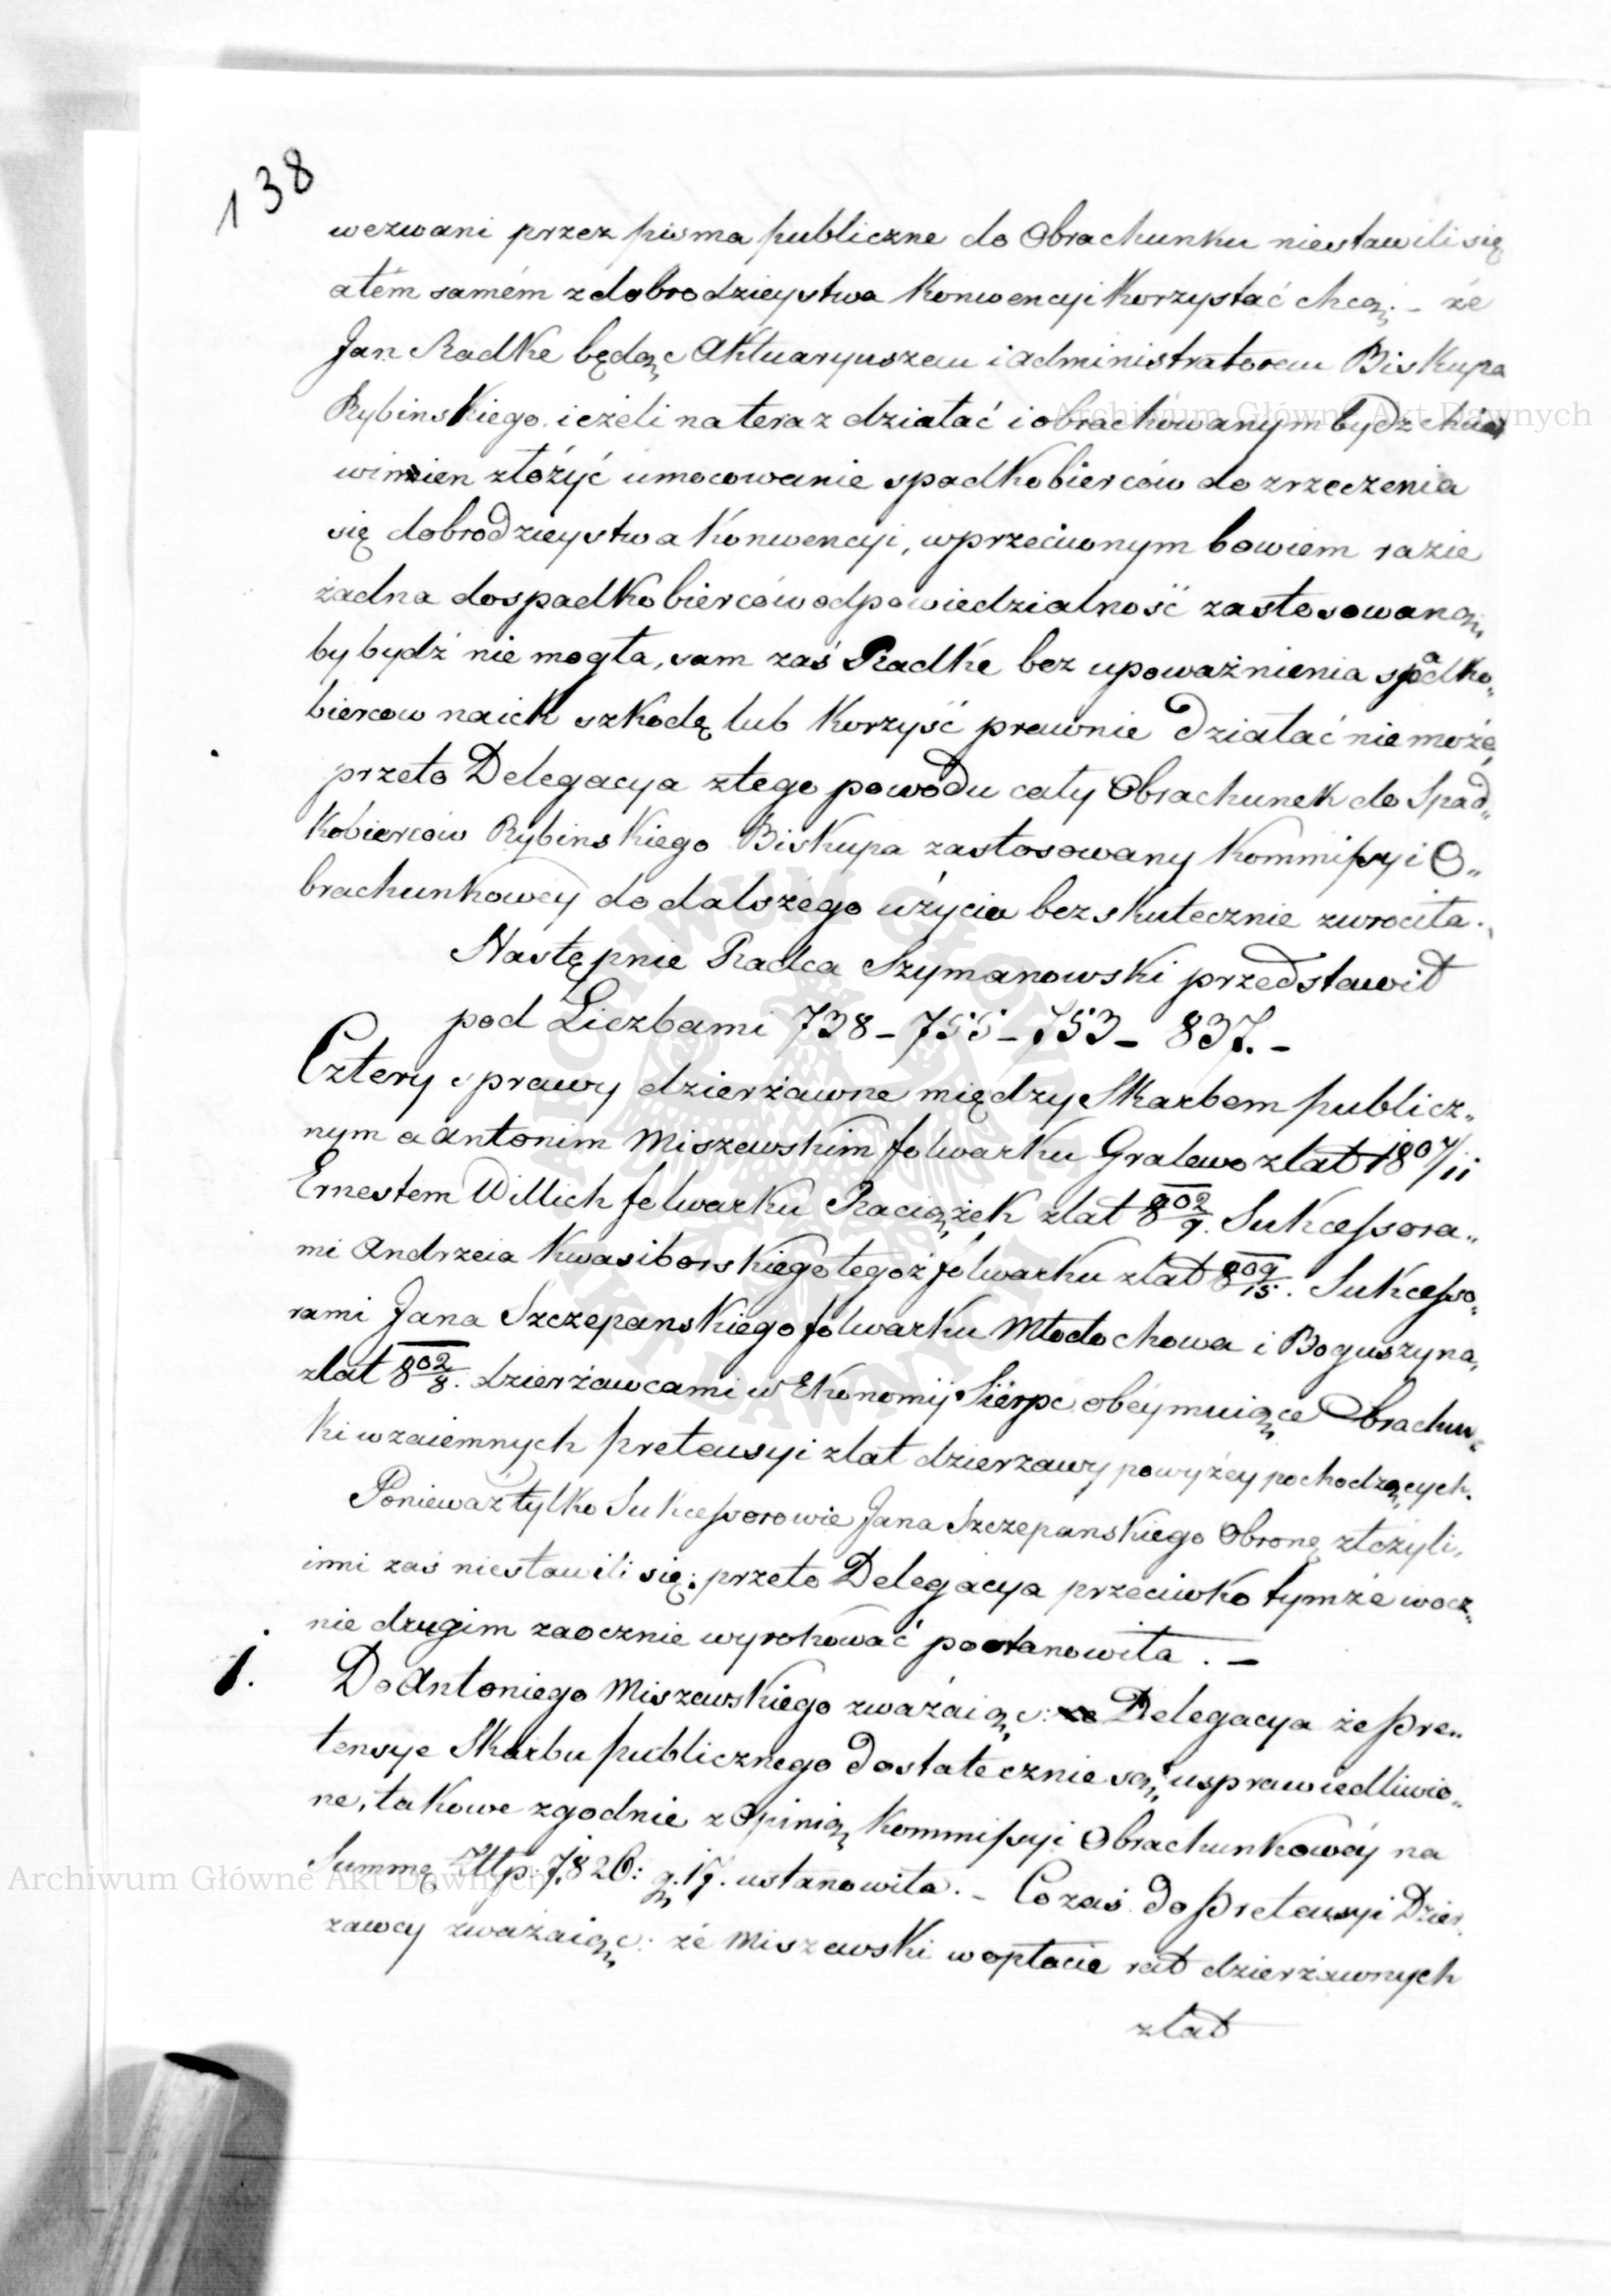 138
wezwani przez pisma publiczne do Obrachunku niestawili się
atém samém z dobrodzieystwa Konwencyi Korzystać chcą; – że
Jan Radke będąc Aktuaryuszem i administratorem Biskupa
Rybinskiego ieżeli na teraz działać i obrachowanym bydz chce
winien złożyć umocowanie spadkobierców do zrzeczenia
się dobrodzieystwa Konwencyi, w przeciwnym bowiem razie
żadna do spadkobierców odpowiedzialność zastosowaną
by bydź nie mogła, sam zaś Radke bez upoważnienia spadko„
bierców na ich szkodę lub Korzyść prawnie działać nie może,
przeto Delegacya z tego powodu cały Obrachunek do Spad„
kobierców Rybinskiego Biskupa zastosowany Kommissyi O„
brachunkowéy do dalszégo użycia bezskutecznie zwrociła.
Następnie Radca Szymanowski przedstawił
pod Liczbami 738 – 755 – 753 – 837. –
Cztery sprawy dzierżawne między Skarbem publicz„
nym a Antonim Miszewskim folwarku Gralewo z lat 1807/11
Ernestem Willich folwarku Raciążek z lat 802/9. Sukcessora„
mi Andrzeia Kwasiborskiego tegoż folwarku z lat 809/15. Sukcesso„
rami Jana Szczepanskiego folwarku Młodochowa i Boguszyna,
z lat 802/8. dzierżawcami w Ekonomij Sierpc obéymuiące Obrachun„
ki wzaiemnych pretensyi z lat dzierzawy powyżéy pochodzących.
Ponieważ tylko Sukcessorowie Jana Szczepanskiego Obronę złożyli,
inni zaś niestawili się; przeto Delegacya przeciwko tymże wocz„
nie drugim zaocznie wyrokować postanowiła. –
1. Do Antoniego Miszewskiego zważaiąc: Delegacya że Pre„
tensye Skarbu publicznego dostatecznie są usprawiedliwio„
ne, takowe zgodnie z Opinią Kommissyi Obrachunkowéy na
Summę Złtp: 7,826: g. 17. ustanowiła. – Co zaś do Pretensyi Dzier„
zawcy zważaiąc: że Miszewski w opłacie rat dzierżawnych
z lat
Archiwum Główne Akt Dawnych
Archiwum Główne Akt Dawnych